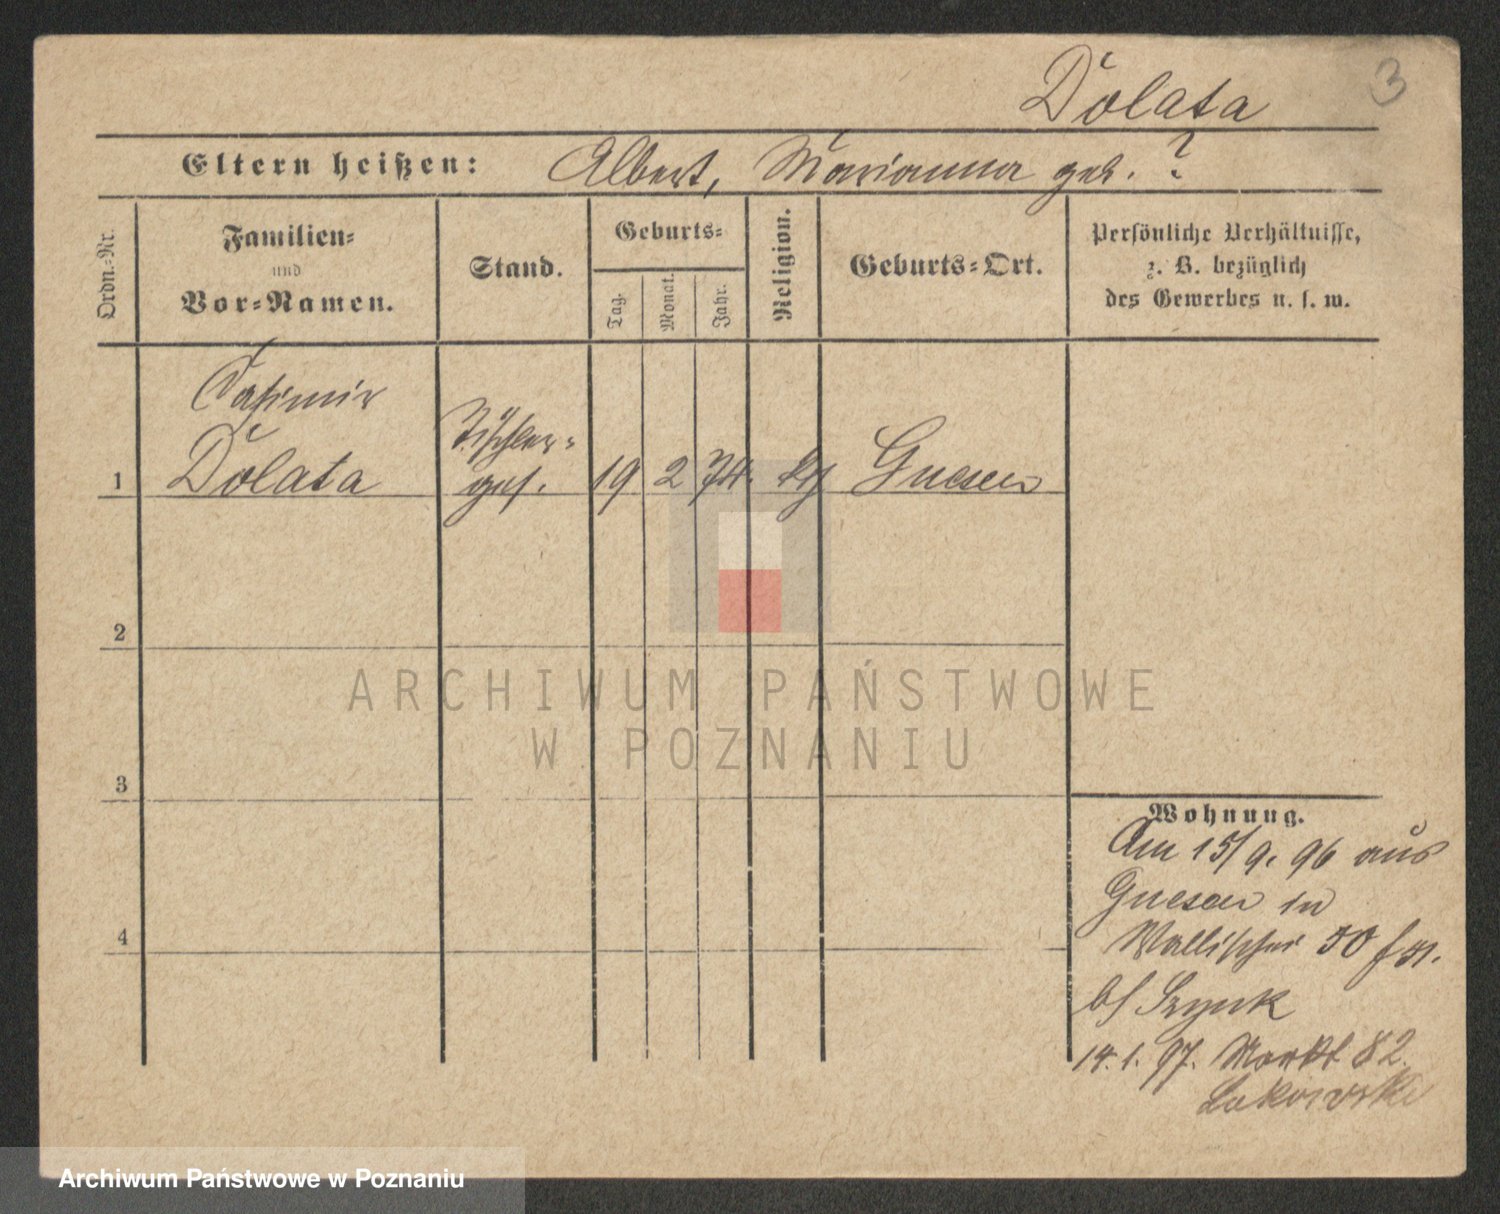 Dolata
3
Eltern heißen: Albert, Marianna geb. ?
Ordn.-Nr.
Familien-
und
Vor-Namen.
Stand.
Geburts-
Tag.
Monat.
Jahr.
Religion.
Geburts-Ort.
Persönliche Verhältnisse,
z. B. bezüglich
des Gewerbes u. s. w.
Casimir
Tischler-
1 Dolata ges. 19 2 74. Gnesen
2
3
4
Wohnung.
Am 15/9. 96 aus
Gnesen in
Wallischei 50
bei Szynk
14.1.97. Markt 82.
Lakowski
ARCHIWUM PAŃSTWOWE
W POZNANIU
Archiwum Państwowe w Poznaniu